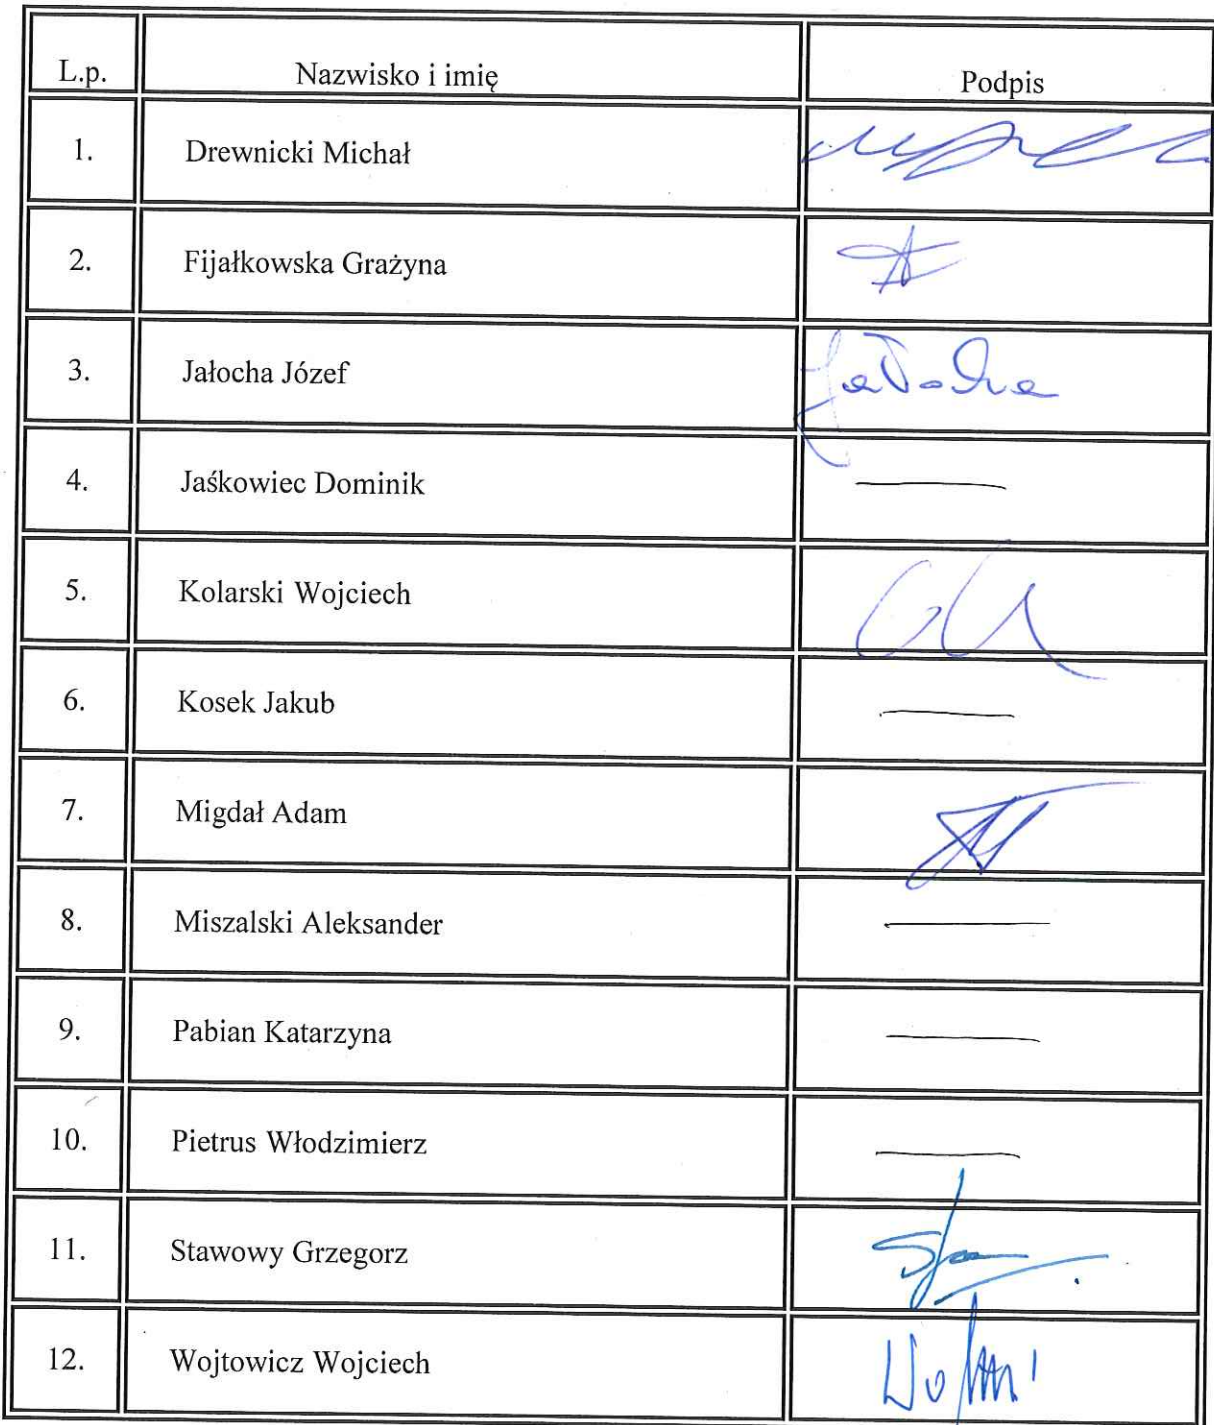 L.p. Nazwisko i imię Podpis
1. Drewnicki Michał
2. Fijałkowska Grażyna
3. Jałocha Józef Jałocha
4. Jaśkowiec Dominik —
5. Kolarski Wojciech
6. Kosek Jakub —
7. Migdał Adam
8. Miszalski Aleksander —
9. Pabian Katarzyna —
10. Pietrus Włodzimierz —
11. Stawowy Grzegorz
12. Wojtowicz Wojciech